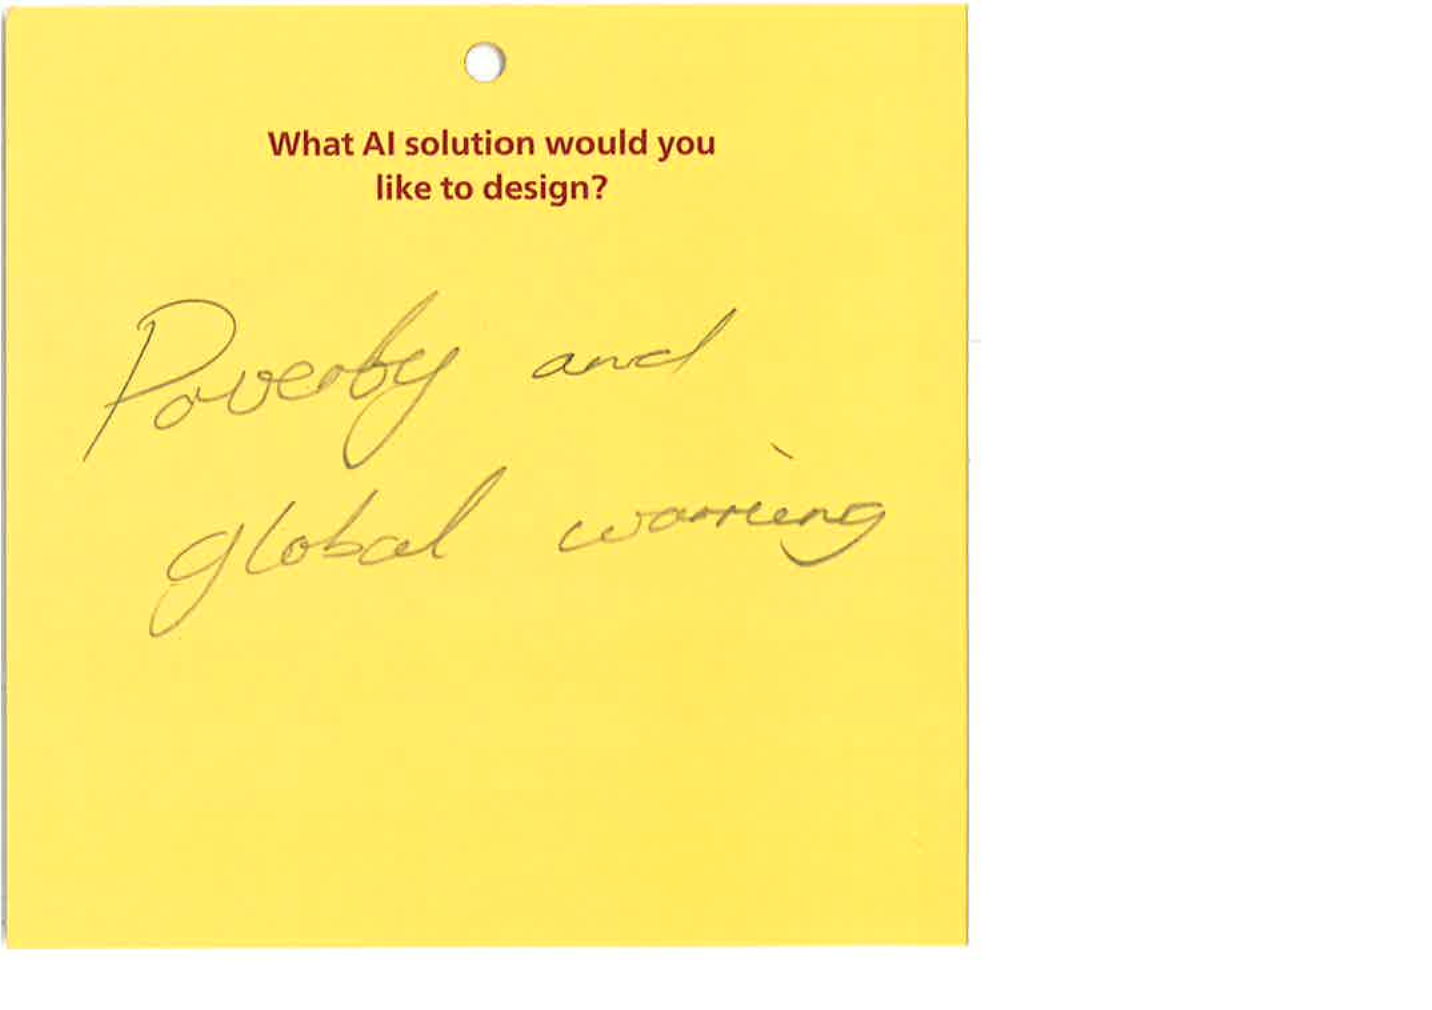 What AI solution would you
like to design?
Poverty and
global warming